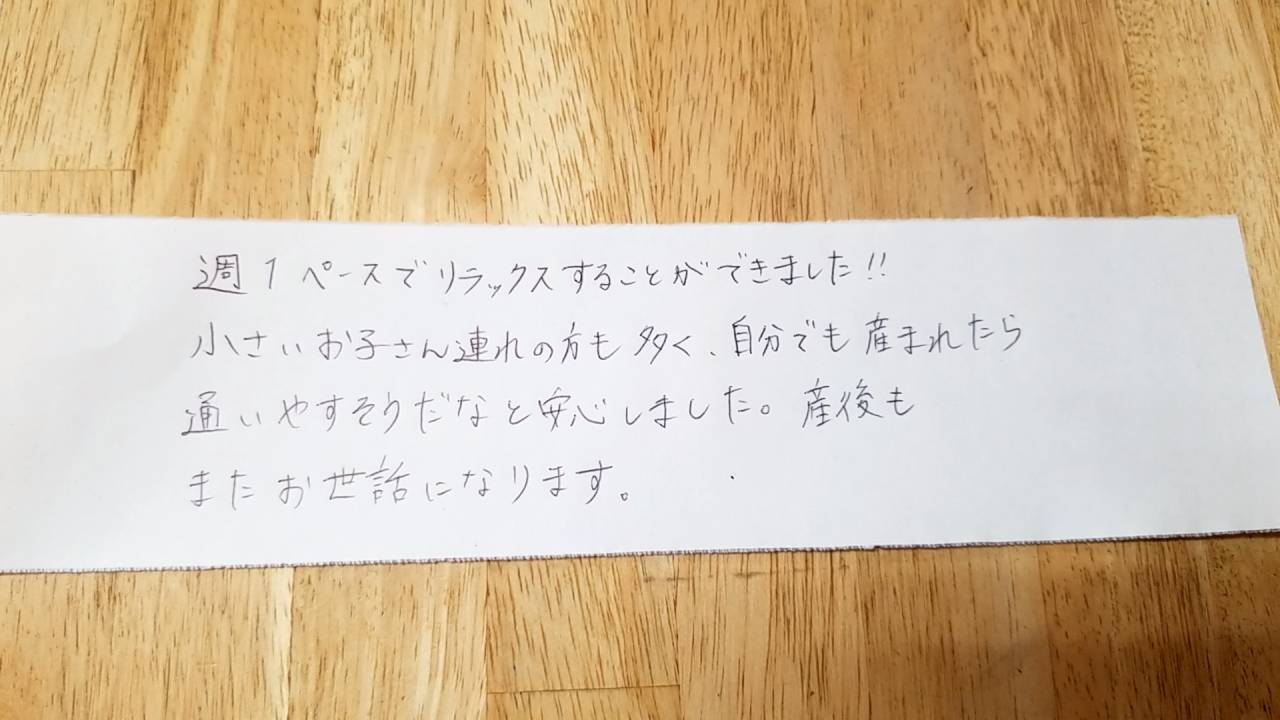 週1ペースでリラックスすることができました!!
小さいお子さん連れの方も多く、自分でも産まれたら
通いやすそうだなと安心しました。産後も
またお世話になります。